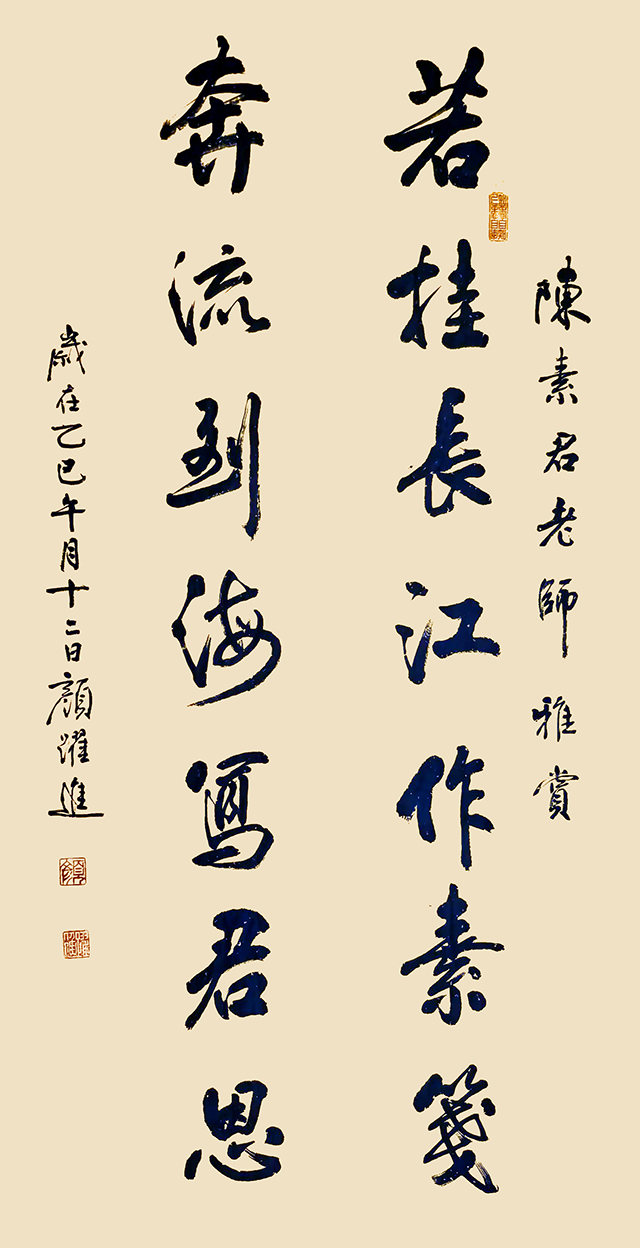 陳素君老師雅賞
若挂長江作素箋
奔流到海寫君恩
歲在乙巳午月十二日顏躍進